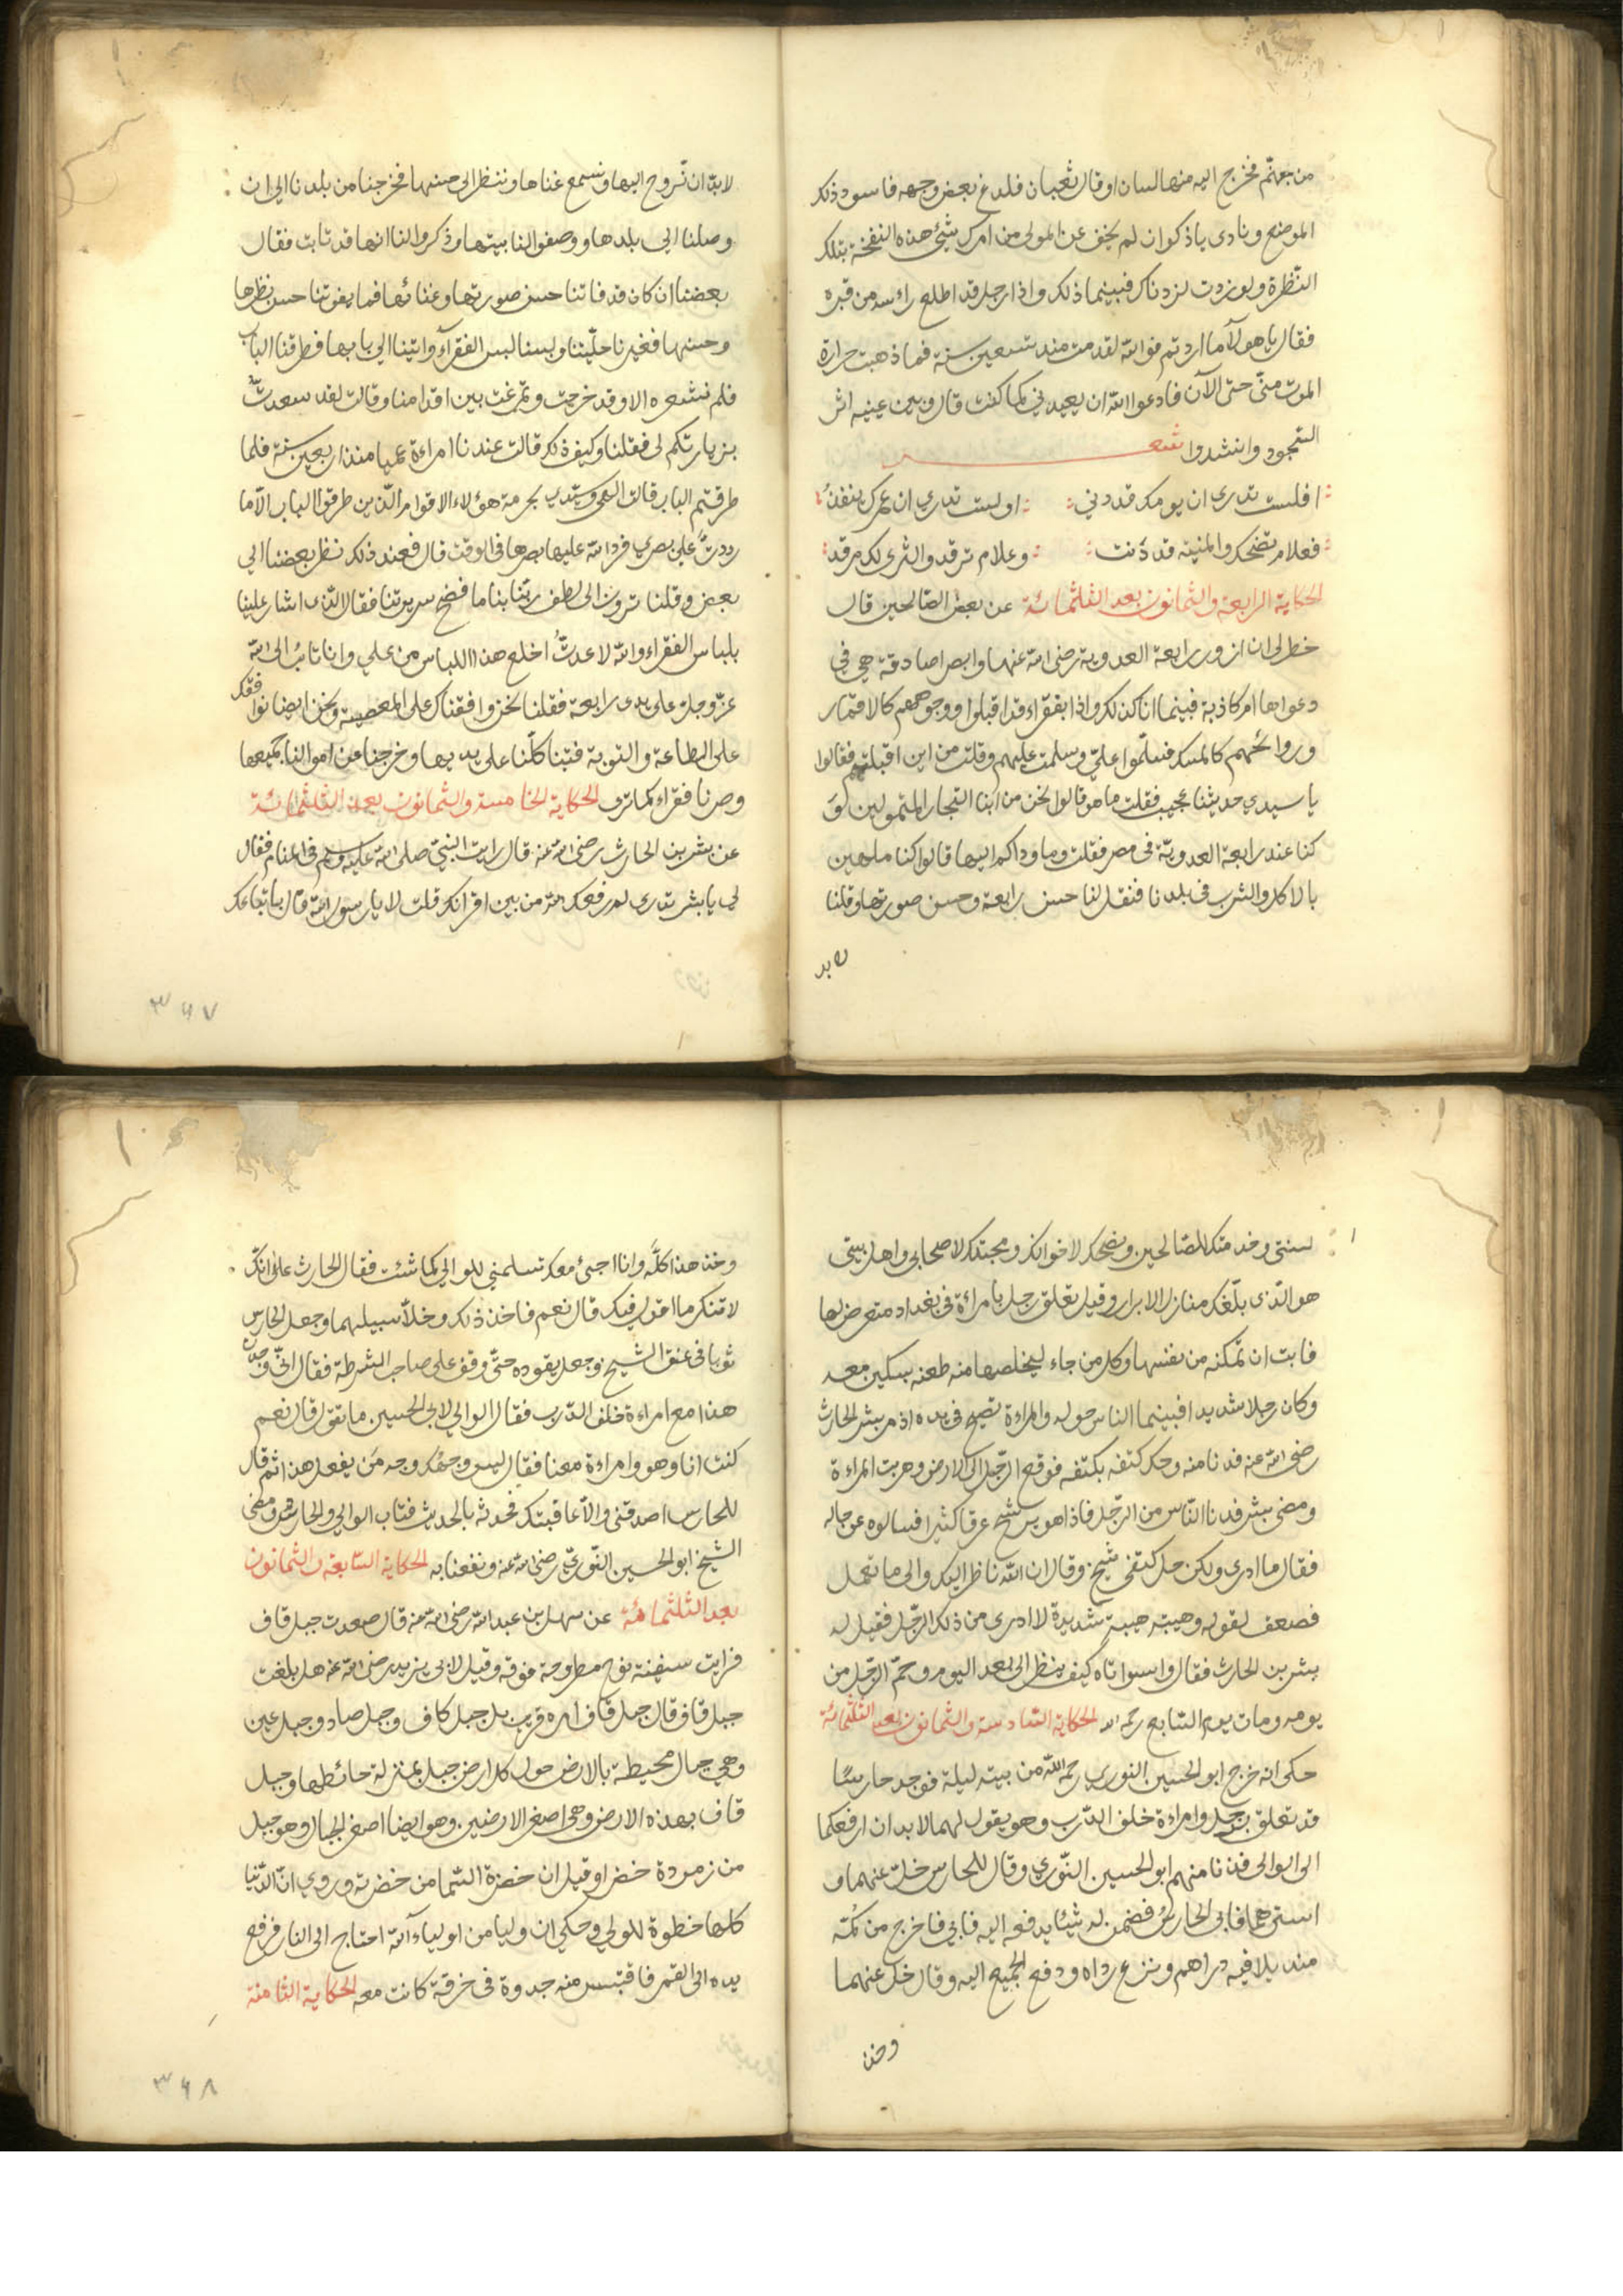 من جهنّم فخرج اليه منها لسان او قال ثعبان فلدغ بعض وجهه فاسود ذلك
الموضع ونادى ياذكوان لم يخف عن المولى من امرك شيئ هذه النفخة بتلك
النّظرة ولو زدت لزدناك فبينما ذلك واذا رجل قد اطلع راسه من قبره
فقال ياهولآ ما اردتم فوالله لقد مت منذ تسعين سنة فما ذهبت حرارة
الموت منّي حتى الآن فادعوا الله ان يعيدني كما كنت قال وبين عينيه اثر
السّجود وانشدوا شعر
افلست تدرى ان يومك قد دني اولست تدري ان عمرك ينفدُ
فعلام تضحك والمنيّة قد دَنت وعلام ترقد والثرى لك مرقد
الحكاية الرابعة والثمانون بعد الثلثمائة عن بعض الصّالحين قال
خطر لى ان ازور رابعة العدوية رضى الله عنها وابصر اصادقة هي في
دعواها ام كاذبة فبينما انا كذلك واذا بفقراء قد اقبلوا ووجوههم كالاقمار
وروائحهم كالمسك فسلّموا عليّ وسلمت عليهم وقلت من اين اقبلتم فقالوا
يا سيدي حديثنا عجيب فقلت ما هو قالوا نحن من ابنا التجار المتمولين
كنا عند رابعة العدويّة في مصر فقلت وما وداكم اليها قالوا كنا ملهين
بالاكل والشرب في بلدنا فنقل لنا حسن رابعة وحسن صورتها وقلنا
لابد
لابدّ ان نّروح اليها ونسمع غناها وننظر الى حسنها فخرجنا من بلدنا الى ان
وصلنا الى بلدها ووصفوا لنا بيتها وذكروا لنا انها قد تابت فقال
بعضنا ان كان قد فاتنا حسن صورتها وغنائها فما يفوتنا حسن نظرها
وحسنها فغيرنا حليّتنا ولبسنا لبس الفقرآ واتينا الى بابها فطرقنا الباب
فلم نشعر الا وقد خرجت وتمرغت بين اقدامنا وقالت لقد سعدتُ
بزيارتكم لى فقلنا وكيف ذلك قالت عندنا امراءة عميا منذ اربعين سنة فلما
طرقتم الباب قالت الهي وسيّدي بحرمة هؤلاء الاقوام الّذين طرقوا الباب الّا ما
رددتَ علىّ بصري فرد الله عليها بصرها في الوقت قال فعند ذلك نظر بعضنا الى
بعض وقلنا ترون الى لطف ربّنا بنا ما فضح سريرتنا فقال الّذى اشار علينا
بلباس الفقراء والله لا عدتُ اخلع هذا اللباس من علي وانا تائب الى الله
عزّ وجل على يدى رابعة فقلنا نحن وافقناك على المعصية ونحن ايضا نوافقك
على الطاعة والتوبة فتبنا كلّنا على يديها وخرجنا عن اموالنا جميعها
وصرنا فقراء كما ترى الحكاية الخامسة والثمانون بعد الثلثمائة
عن بشر بن الحارث رضى الله عنه قال رايت النبيّ صلى الله عليه وسلم في المنام فقال
لي يا بشر تدرى لم رفعك الله من بين اقرانك قلت لا يارسول الله قال باتباعك
٣٤٧
لسنتى وخدمتك للصّالحين ونصحك لاخوانك ومحبتك لاصحابى واهل بيتى
هو الّذى بلّغك منازل الابرار وقيل تعلق رجل بامراءة في بغداد متعرض لها
فابت ان تمكنه من نفسها وكل من جاء ليخلصها منه طعنه بسكين معه
وكان رجلا شديدا فبينما الناس حوله والمراءة تصيح في يده اذ مر بشر الحارث
رضى الله عنه فدنا منه وحك كتفه بكتفه فوقع الرّجل الى الارض وهربت المراءة
ومضى بشر فدنا النّاس من الرّجل فاذا هو يرشح عرقا كثيرا فسالوه عن حاله
فقال ما ادرى ولكن حك كتفى شيخ وقال ان الله ناظر اليك والى ما تعمل
فضعف لقوله وهيبته هيبة شديدة لا ادرى من ذلك الرّجل فقيل له
بشر بن الحارث فقال واسواتاه كيف ينظر الى بعد اليوم وحمّ الرّجل من
يومه ومات يوم السّابع رحمه الله الحكاية السّادسة والثمانون بعد الثلثمائة
حكى انه خرج ابو الحسين النوري رحمه الله من بيته ليلة فوجد حارسًا
قد تعلق برجل وامراءة خلف الدّرب وهو يقول لهما لا بد ان ارفعكما
الى الوالى فدنا منهم ابو الحسين النّوري وقال للحارس خل عنهما و
استرهما فابى الحارس فضمن له شيئا يدفعه اليه فابى فاخرج من كُمّه
منديلا فيه دراهم ونزع رداه ودفع الجميع اليه وقال خل عنهما
وخذ
وخذ هذا كلّه وانا اجئ معك تسلمني للوالي كما شئت فقال الحارث على انّك
لا تنكر ما اقول فيك قال نعم فاخذ ذلك وخلّا سبيلهما وجعل الحارس
ثوبا في عنق الشيخ وجعل يقوده حتّى وقف على صاحب الشرطة فقال انّي وجدت
هذا مع امراءة خلف الدّرب فقال الوالي لابى الحسين ما تقول قال نعم
كنت انا وهو وامراءة معنا فقال ليس وجهك وجه مَن يفعل هذا ثم قال
للحارس اصدقنى والّا عاقبتك فحدثه بالحديث فتاب الوالي والحارس ومضى
الشيخ ابو الحسين النّوريّ رضى الله عنه ونفعنا به الحكاية السّابعة والثمانون
بعد الثلثمائة عن سهل بن عبد الله رضى الله عنه قال صعدت جبل قاف
فرايت سفينة نوح مطروحة فوقه وقيل لابى يزيد رضى الله عنه هل بلغت
جبل قاف قال جبل قاف امره قريب بل جبل كاف وجبل صاد وجبل عين
وهي جبال محيطة بالارض حول كل ارض جبل بمنزلة حائطها وجبل
قاف بهذه الارض وهى اصغر الارضين وهو ايضا اصغر الجبال وهو جبل
من زمردة خضرا وقيل ان خضرة السّما من خضرته وروي انّ الدّنيا
كلها خطوة للولي وحكي ان وليا من اولياء الله احتاج الى النار فرفع
يده الى القمر فاقتبس منه جدوة في خرقة كانت معه الحكاية الثامنة
٣٤٨